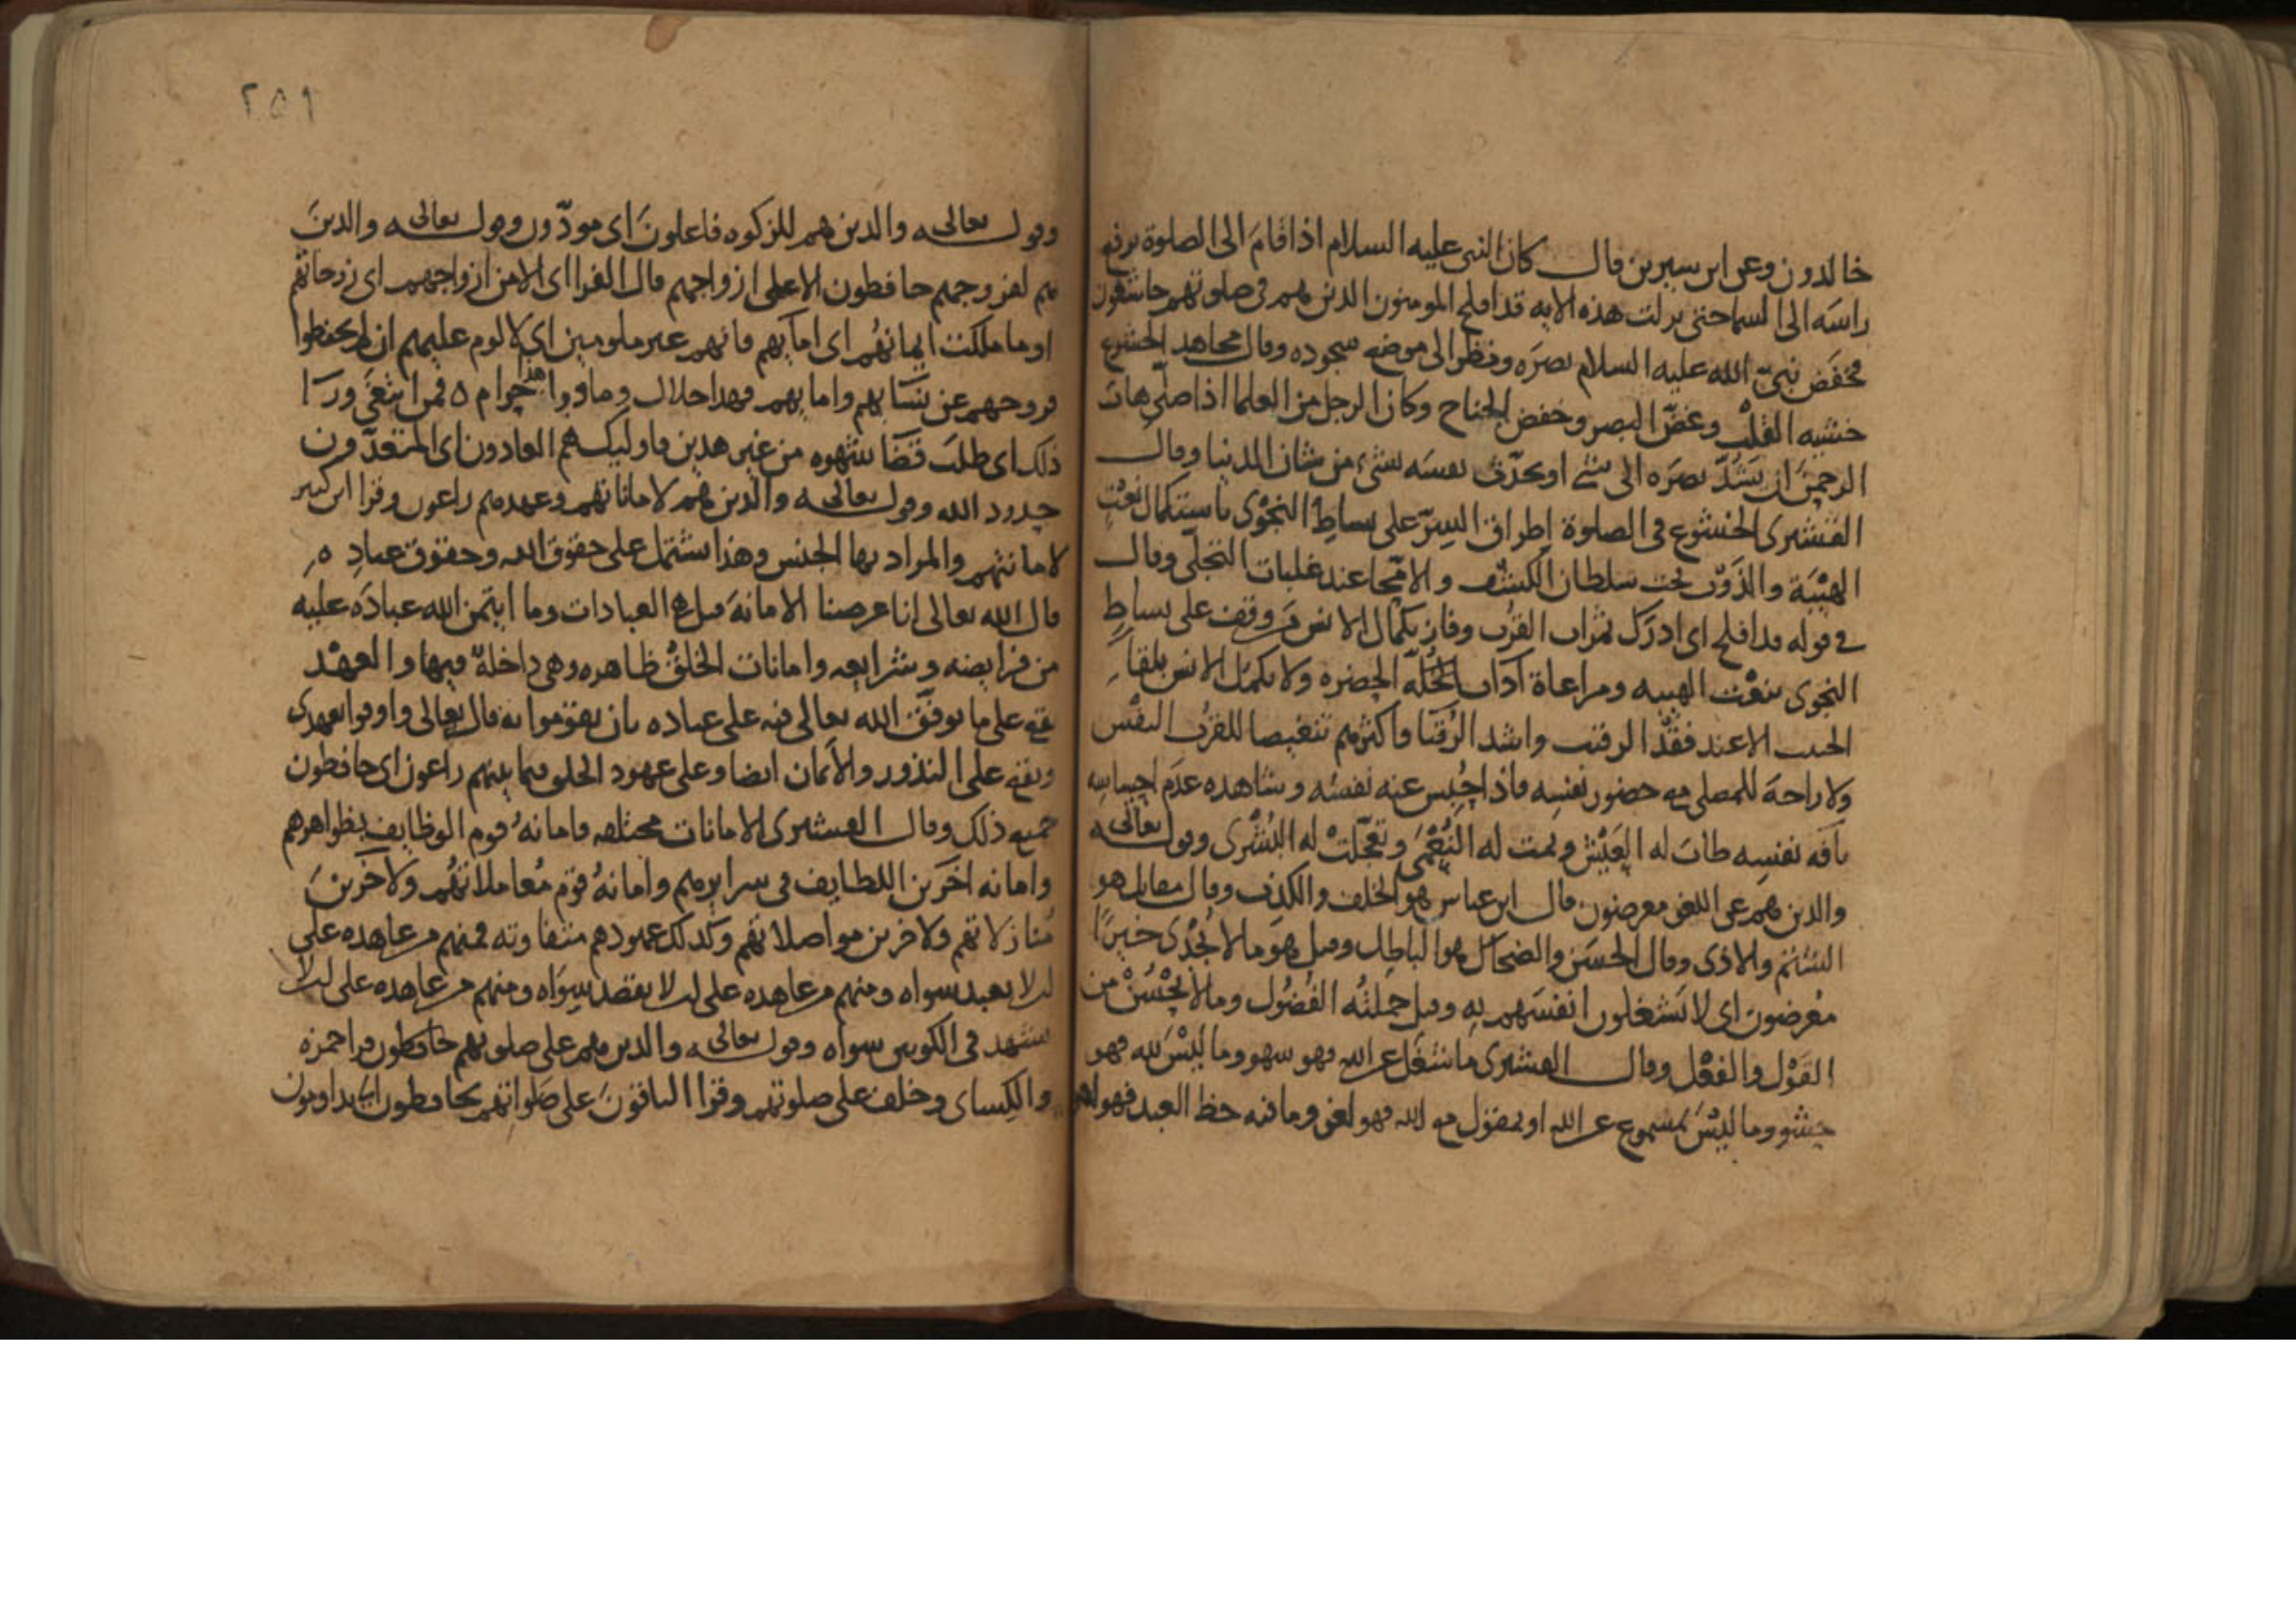 خالدون وعن ابن سيرين قال كان النبى عليه السلام اذا قام الى الصلوة يرفع
راسه الى السما حتى نزلت هذه الايه قد افلح المومنون الذين هم فى صلوتهم خاشعون
فخفض نبى الله عليه السلام بصره ونظر الى موضع سجوده وقال مجاهد الخشوع
خشيه القلب وغض البصر وخفض الجناح وكان الرجل من العلما اذا صلى هاب
الرحمن ان يشد بصره الى شى او يحدث نفسه بشىء من شان الدنيا وقال
القشيرى الخشوع فى الصلوة اطراق السر على بساط النجوى باستكمال نعت
الهيبة والذوب تحت سلطان الكشف والامتحا عند غلبات التجلى وقال
فى قوله قد افلح اى ادرك ثمرات القرب وفاز بكمال الانس من وقف على بساط
النجوى بنعت الهيبه ومراعاة آداب الحضره ولا يكمل الانس بلقا
الحبيب الا عند فقد الرقيب واشد الرقبا واكثرهم تنغيصا للقرب النفس
ولا راحة للمصلى مع حضور نفسه فاذا خنس عنه نفسه وشاهده عدم احساسه
بآفه نفسه طاب له العيش وتمت له النعمى وتعجلت له البشرى وقوله تعالى
والذين هم عن اللغو معرضون قال ابن عباس هو الخلف والكذب وقال مقاتل هو
الشتم والاذى وقال الحسن والضحاك هو الباطل وقيل هو ما لا يجدى خيرا
معرضون اى لا يشغلون انفسهم به وقيل جملته الفضول وما لا يحسن من
القول والفعل وقال القشيرى ما شغل عن الله فهو سهو وما ليس لله فهو
حشو وما ليس بمسموع عن الله او بمقول مع الله فهو لغو وما فيه حظ العبد فهو لهو
٢٥٩
وقوله تعالى والذين هم للزكوه فاعلون اى مودون وقوله تعالى والذين
هم لفروجهم حافظون الا على ازواجهم قال الفرا اى الا من ازواجهم اى زوجاتهم
او ما ملكت ايمانهم اى امآيهم فانهم غير ملومين اى لا لوم عليهم ان لم يحفظوا
فروجهم عن نسايهم وامايهم فهذا حلال وما ورا هذا حرام ٥ فمن ابتغى ورآ
ذلك اى طلب قضآ شهوه من غير هذين فاوليك هم العادون اى المتعدون
حدود الله وقوله تعالى والذين هم لاماناتهم وعهدهم راعون وقرا ابن كثير
لامانتهم والمراد بها الجنس وهذا يشتمل على حقوق الله وحقوق عباده
قال الله تعالى انا عرضنا الامانة قيل هى العبادات وما ايتمن الله عباده عليه
من فرايضه وشرايعه وامانات الخلق ظاهره وهى داخلة فيها والعهد
يقع على ما توثق الله تعالى فيه على عباده بان يقوموا به قال تعالى واوفوا بعهدى
ويقع على النذور والأيمان ايضا وعلى عهود الخلق فيما بينهم راعون اى حافظون
جميع ذلك وقال القشيرى الامانات مختلفه فامانة قوم الوظايف بظواهرهم
وامانه آخرين اللطايف فى سرايرهم وامانة قوم معاملاتهم ولآخرين
منازلاتهم ولاخرين مواصلاتهم وكذلك عهودهم متفاوته فمنهم من عاهده على
ان لا يعبد سواه ومنهم من عاهده على ان لا يقصد سواه ومنهم من عاهده على ان لا
يشهد فى الكونين سواه وقوله تعالى والذين هم على صلوتهم حافظون قرا حمزه
والكساى وخلف على صلوتهم وقرا الباقون على صلواتهم يحافظون اى يداومون